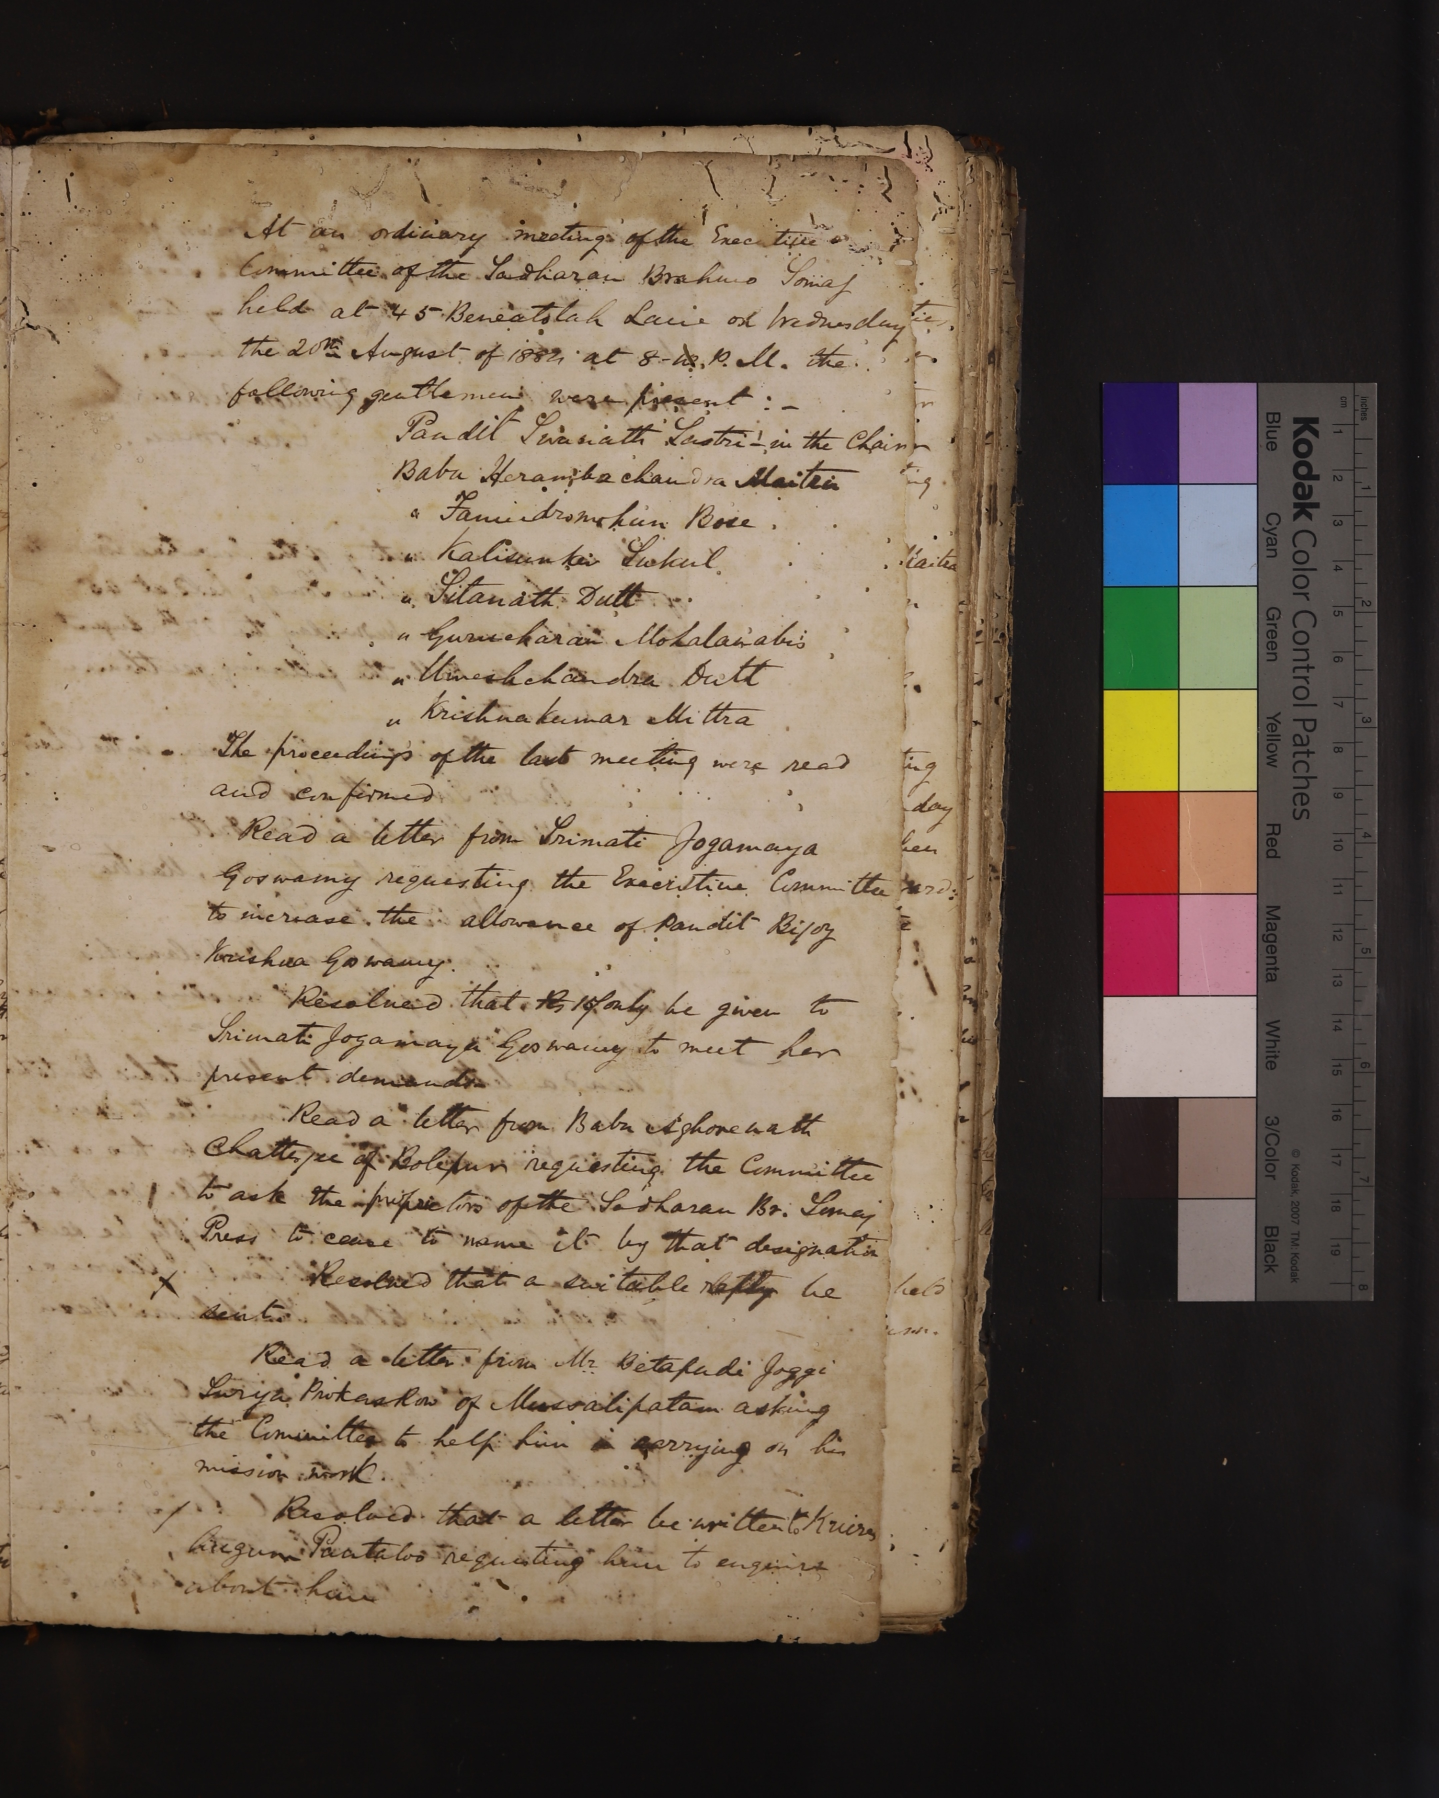 At an ordinary meeting of the Executive
Committee of the Sadharan Brahmo Somaj
held at 45 Beneatolah Lane on Wednesday
the 20th August of 1884 at 8- P.M. the
following gentlemen were present : -
Pandit Sivanath Sastri - in the Chair
Babu Herambachandra Maitra
" Fanindromohun Bose .
" Kalisunker Sukul
" Sitanath Dutt
" Gurucharan Mohalanabis
" Umeshchandra Dutt
" Krishnakumar Mittra
The proceedings of the last meeting were read
and confirmed
Read a letter from Srimati Jogamaya
Goswamy requesting the Executive Committee
to increase the allowance of Pandit Bijoy
Krishna Goswamy.
Resolved that Rs only be given to
Srimati Jogamaya Goswamy to meet her
present demands
Read a letter from Babu Aghorenath
Chatterjee of Bolepur requesting the Committee
to ask the proprietors of the Sadharan Br. Somaj
Press to cease to name it by that designation
x Resolved that a suitable reply be
sent.
Read a letter from Mr Betapudi Joggi
Suriya Prokash Row of Mussalipatam asking
the Committee to help him in carrying on his
mission work.
/ Resolved that a letter be written to
Pantaloo requesting him to enquire
about him
ting
day
held
Kodak Color Control Patches
Blue Cyan Green Yellow Red Magenta White 3/Color Black
© Kodak, 2007 TM: Kodak
inches 1 2 3 4 5 6 7 8
cm 1 2 3 4 5 6 7 8 9 10 11 12 13 14 15 16 17 18 19